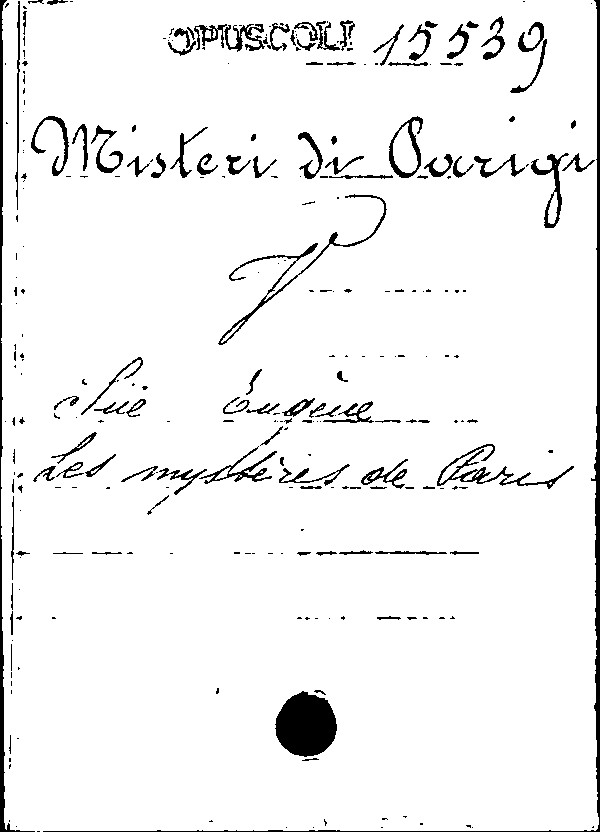 OPUSCOLI 15539
Misteri di Parigi
V
Süe Eugène
Les mystères de Paris